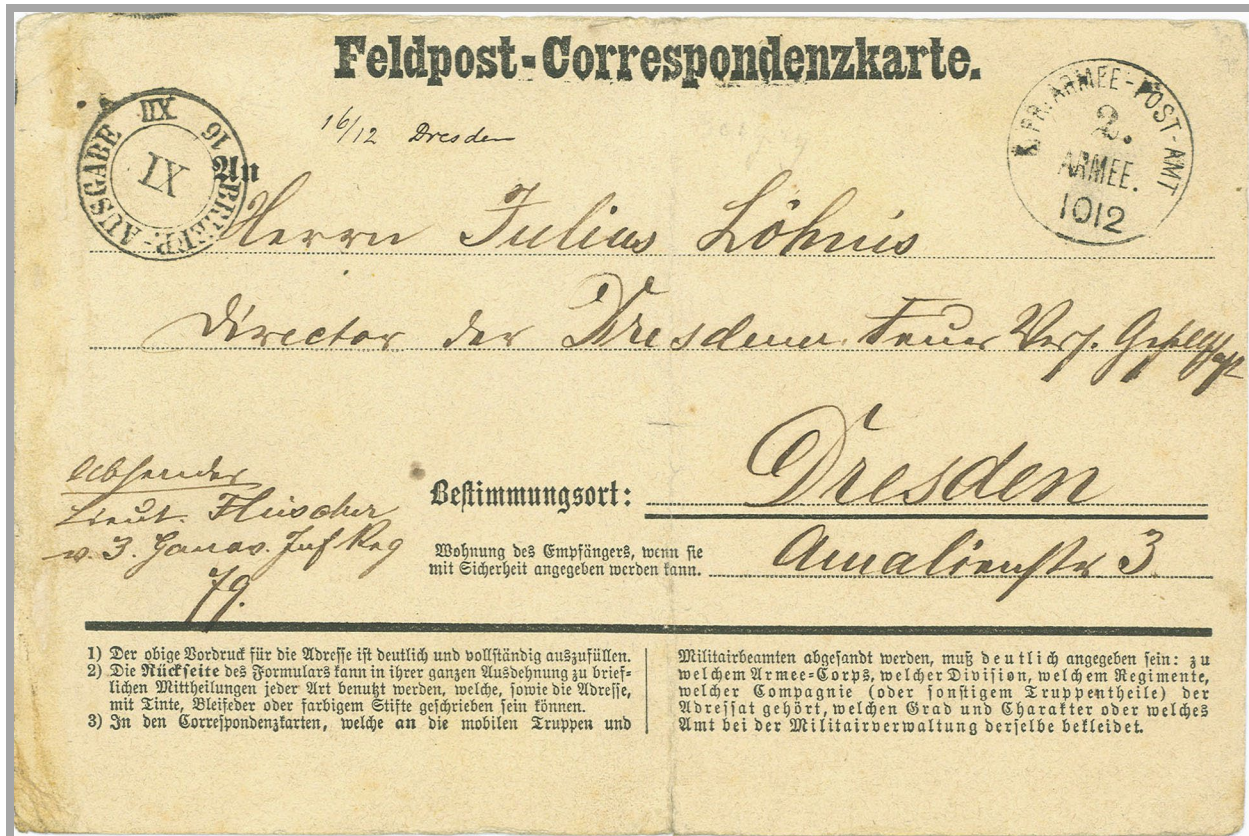 Feldpost-Correspondenzkarte.
16/12 Dresden
BRIEF-AUSGABE
16 XII
IX
K. PR. ARMEE-POST-AMT
2.
ARMEE.
1012
An
Herrn Julius Löhnis
Director der Dresdener Feuer Vers. Gesellschaft
Dresden
Bestimmungsort:
Absender
Lieut. Fluscher
v. 3. Hannov. Inf Reg
79.
Wohnung des Empfängers, wenn sie
mit Sicherheit angegeben werden kann.
Amalienstr 3
1) Der obige Vordruck für die Adresse ist deutlich und vollständig auszufüllen.
2) Die Rückseite des Formulars kann in ihrer ganzen Ausdehnung zu brief-
lichen Mittheilungen jeder Art benutzt werden, welche, sowie die Adresse,
mit Tinte, Bleifeder oder farbigem Stifte geschrieben sein können.
3) In den Correspondenzkarten, welche an die mobilen Truppen und
Militairbeamten abgesandt werden, muß deutlich angegeben sein: zu
welchem Armee-Corps, welcher Division, welchem Regimente,
welcher Compagnie (oder sonstigem Truppentheile) der
Adressat gehört, welchen Grad und Charakter oder welches
Amt bei der Militairverwaltung derselbe bekleidet.